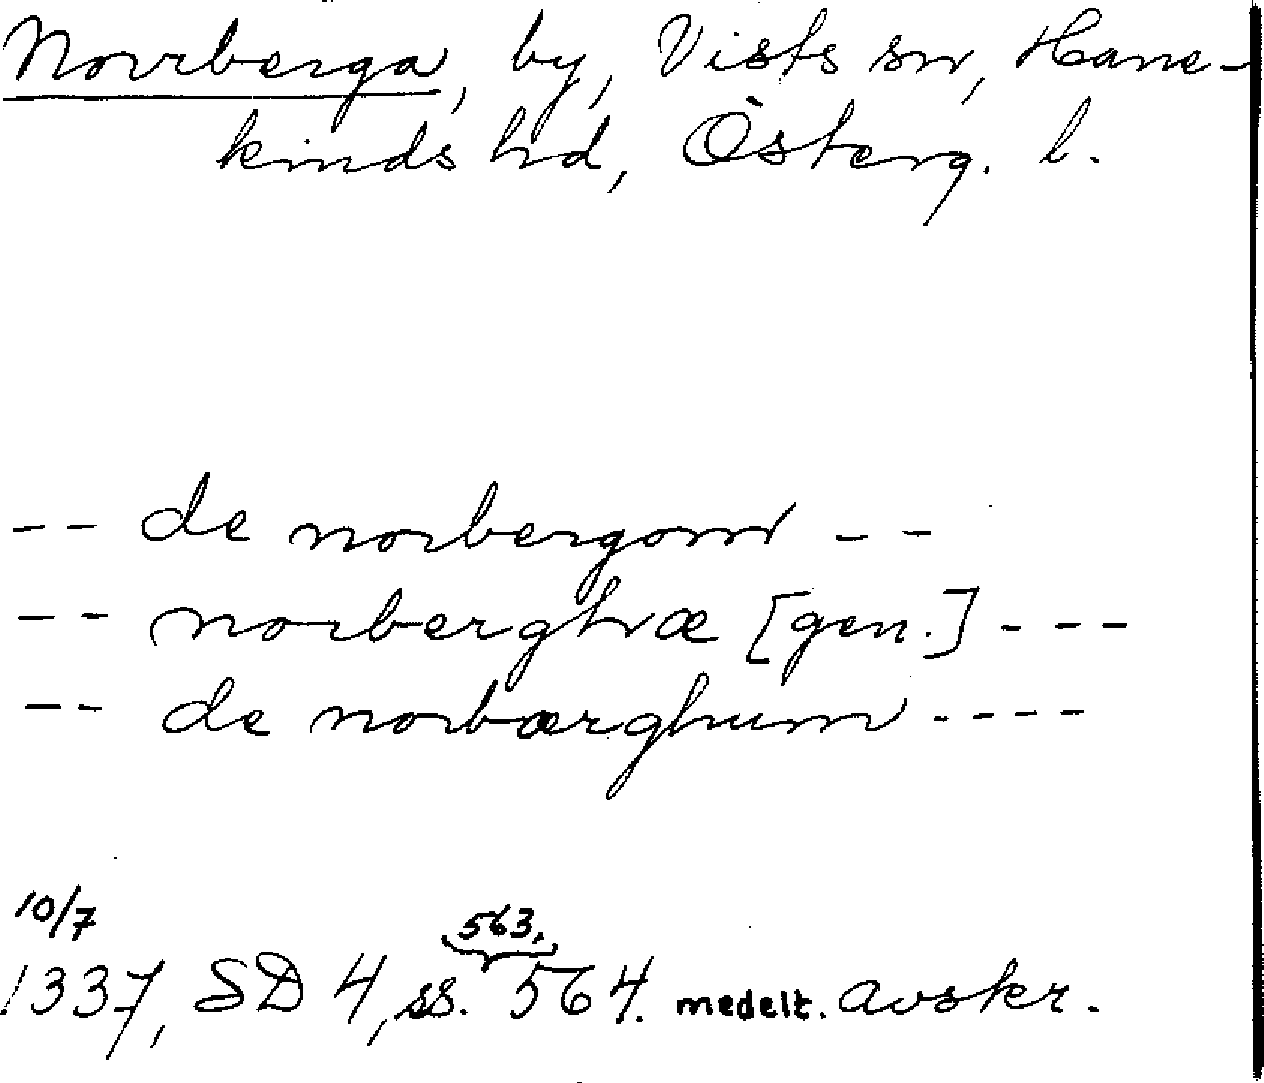 Norrberga, by, Vists sn, Hane-
kinds hd, Österg. l.
-- de norbergom --
-- norberghæ [gen.] ---
-- de norbærghum ----
10/7
563,
1337, SD 4, ss. 564. medelt. avskr.